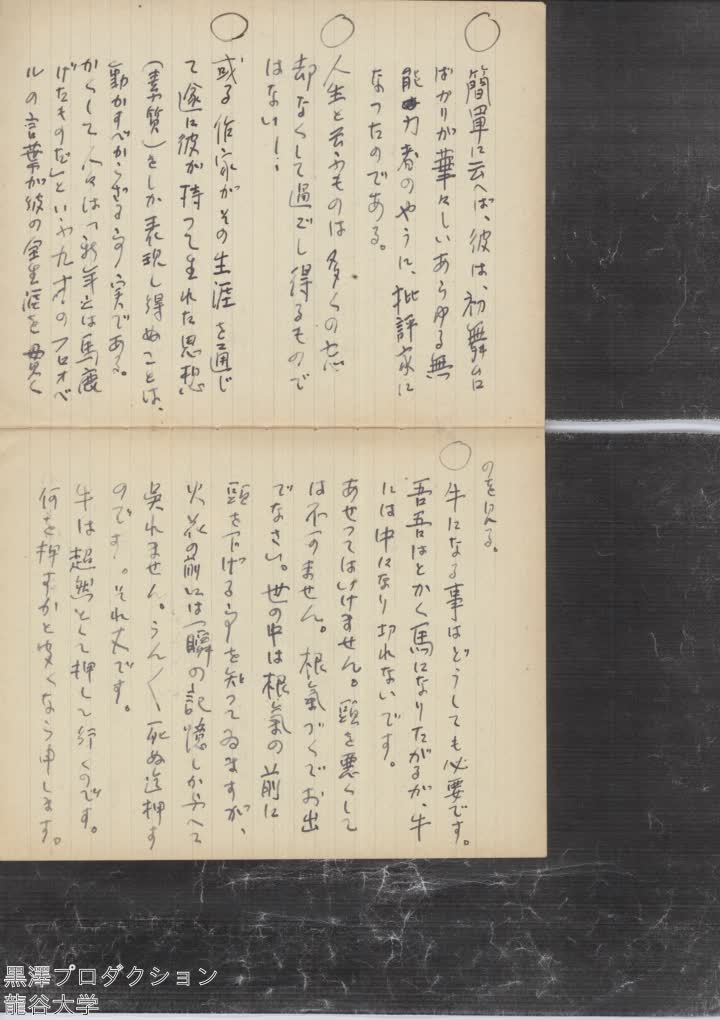 簡単に云へば、彼は、初舞台に
ばかりが華々しいあらゆる無
能力者のやうに、批評家に
なつたのである。
人生と云ふものは多くの忘
却なくして過ごし得るもので
はない！
或る作家がその生涯を通じ
て遂に彼が持つて生れた思想
（素質）をしか表現し得ぬことは、
動かすべからざる事実である。
かくして人々は「新年とは馬鹿
げたものだ」といふ九才のフロオベ
ルの言葉が彼の全生涯を貫く
のを見る。
牛になる事はどうしても必要です。
吾吾はとかく馬になりたがるが、牛
には中々なり切れないです。
あせつてはいけません。頭を悪くして
は不可ません。根氣づくでお出
でなさい。世の中は根氣の前に
頭を下げる事を知つてゐますが、
火花の前には一瞬の記憶しか与へて
呉れません。うんうん死ぬ迄押す
のです。それ丈です。
牛は超然として押して行くのです。
何を押すかと聞くなら申します。
黒澤プロダクション
龍谷大学